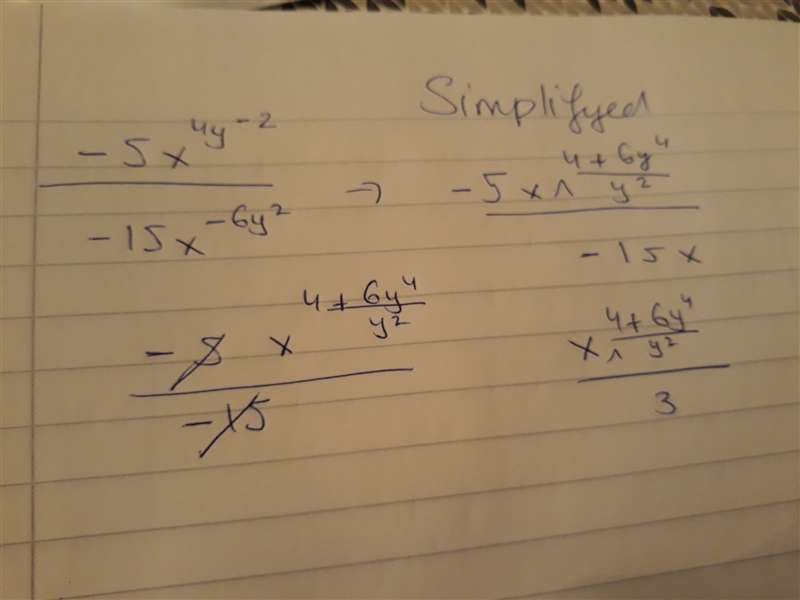 Simplifyed
-5x^4y^-2 / -15x^-6y^2 → -5x^(4+6y^4)/y^2 / -15x
-5 x^(4+6y^4)/y^2 / -15
x^(4+6y^4)/y^2 / 3